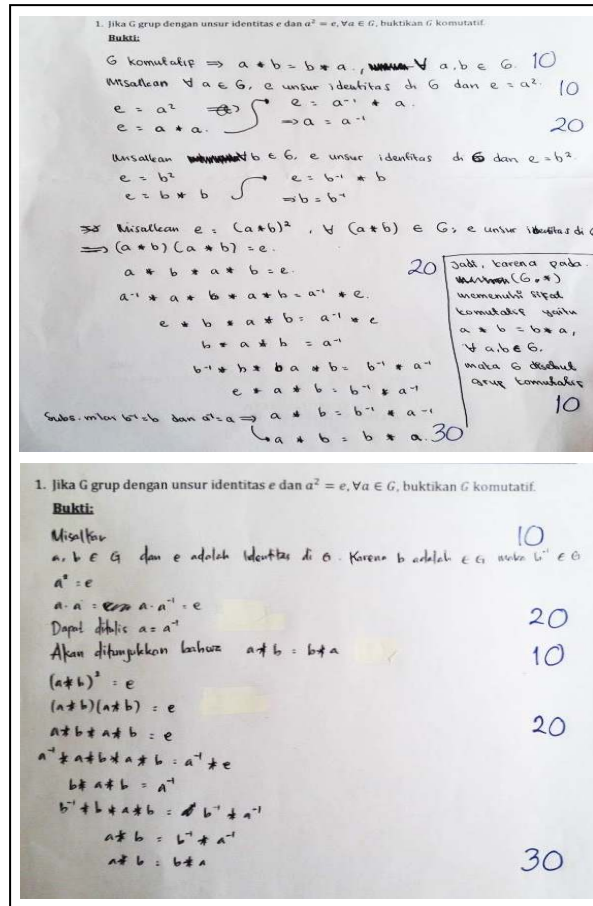 1. Jika G grup dengan unsur identitas e dan a² = e, ∀a ∈ G, buktikan G komutatif.
Bukti:
G komutatif ⇒ a * b = b * a., ∀ a,b ∈ G. 10
Misalkan ∀ a ∈ G, e unsur identitas di G dan e = a². 10
e = a² e = a⁻¹ * a.
e = a * a. ⇒ a = a⁻¹ 20
Misalkan ∀ b ∈ G, e unsur identitas di G dan e = b².
e = b² e = b⁻¹ * b
e = b * b ⇒ b = b⁻¹
Misalkan e = (a*b)², ∀ (a*b) ∈ G, e unsur identitas di G
⇒ (a * b)(a * b) = e.
a * b * a * b = e. 20
a⁻¹ * a * b * a * b = a⁻¹ * e.
e * b * a * b = a⁻¹ * e
b * a * b = a⁻¹
b⁻¹ * b * a * b = b⁻¹ * a⁻¹
e * a * b = b⁻¹ * a⁻¹
Subs. nilai b⁻¹=b dan a⁻¹=a ⇒ a * b = b⁻¹ * a⁻¹
a * b = b * a. 30
Jadi, karena pada
(G,*)
memenuhi sifat
komutatif yaitu
a * b = b * a,
∀ a,b ∈ G.
maka G disebut
grup komutatif
10
1. Jika G grup dengan unsur identitas e dan a² = e, ∀a ∈ G, buktikan G komutatif.
Bukti:
Misalkan 10
a, b ∈ G dan e adalah identitas di G. Karena b adalah ∈ G maka b⁻¹ ∈ G
a² = e
a . a = a . a⁻¹ = e
Dapat ditulis a = a⁻¹ 20
Akan ditunjukkan bahwa a * b = b * a 10
(a * b)² = e
(a * b)(a * b) = e
a * b * a * b = e 20
a⁻¹ * a * b * a * b = a⁻¹ * e
b * a * b = a⁻¹
b⁻¹ * b * a * b = b⁻¹ * a⁻¹
a * b = b⁻¹ * a⁻¹
a * b = b * a 30